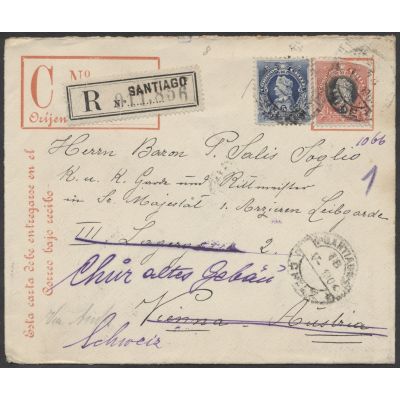 C Nº
Orijen
SANTIAGO
R Nº
1066
1
Herrn Baron P. Salis Soglio
K. u. K. Garde und Rittmeister
in Sr. Majestät 1. Arzieren Leibgarde
III. 2.
Chur altes Gebäu
Vienna Austria
Schweiz
Esta carta debe entregarse en el
Correo bajo recibo